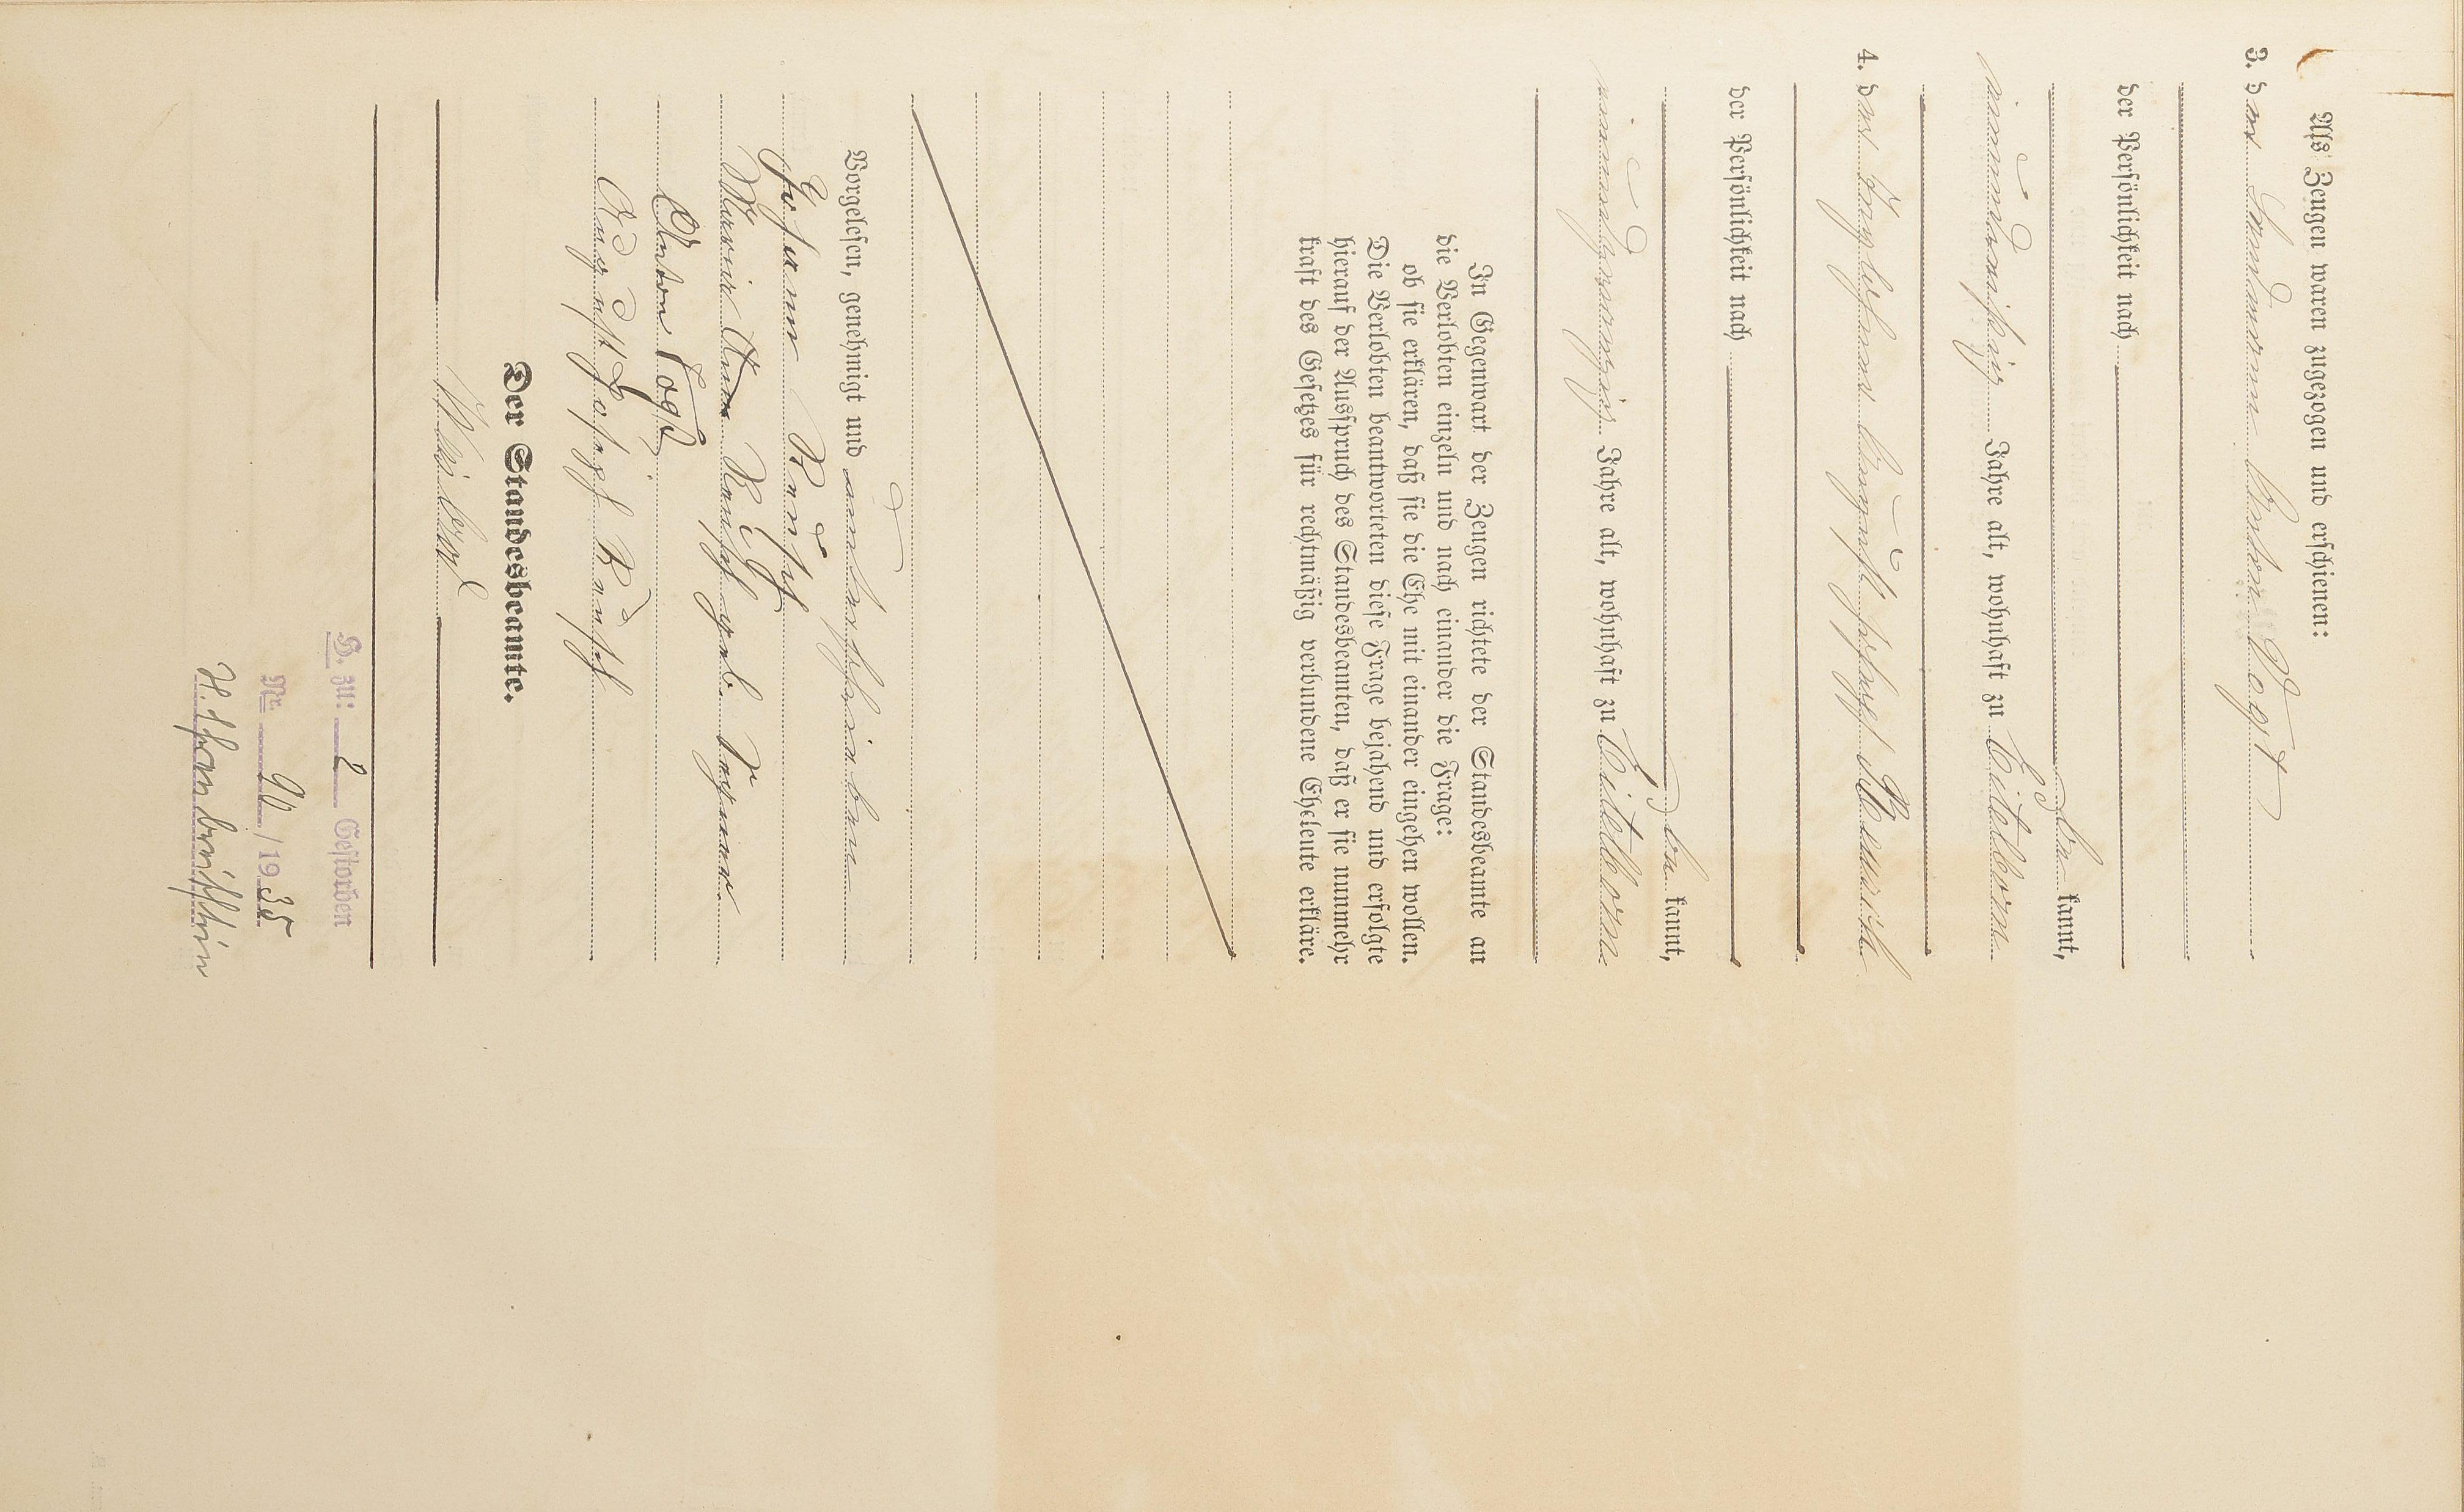 Als Zeugen waren zugezogen und erschienen:
3. der Landmann Anton Vogt
der Persönlichkeit nach
be kannt,
einunddreißig Jahre alt, wohnhaft zu Eitelborn
4. der August Joseph
der Persönlichkeit nach
be kannt,
Jahre alt, wohnhaft zu Eitelborn
In Gegenwart der Zeugen richtete der Standesbeamte an
die Verlobten einzeln und nach einander die Frage:
ob sie erklären, daß sie die Ehe mit einander eingehen wollen.
Die Verlobten beantworteten diese Frage bejahend und erfolgte
hierauf der Ausspruch des Standesbeamten, daß er sie nunmehr
kraft des Gesetzes für rechtmäßig verbundene Eheleute erkläre.
Vorgelesen, genehmigt und unterschrieben
Johann
Maria Anna geb.
Anton Vogt
August Joseph
Der Standesbeamte.
H. zu: 2 Gestorben
Nr. 90/1935